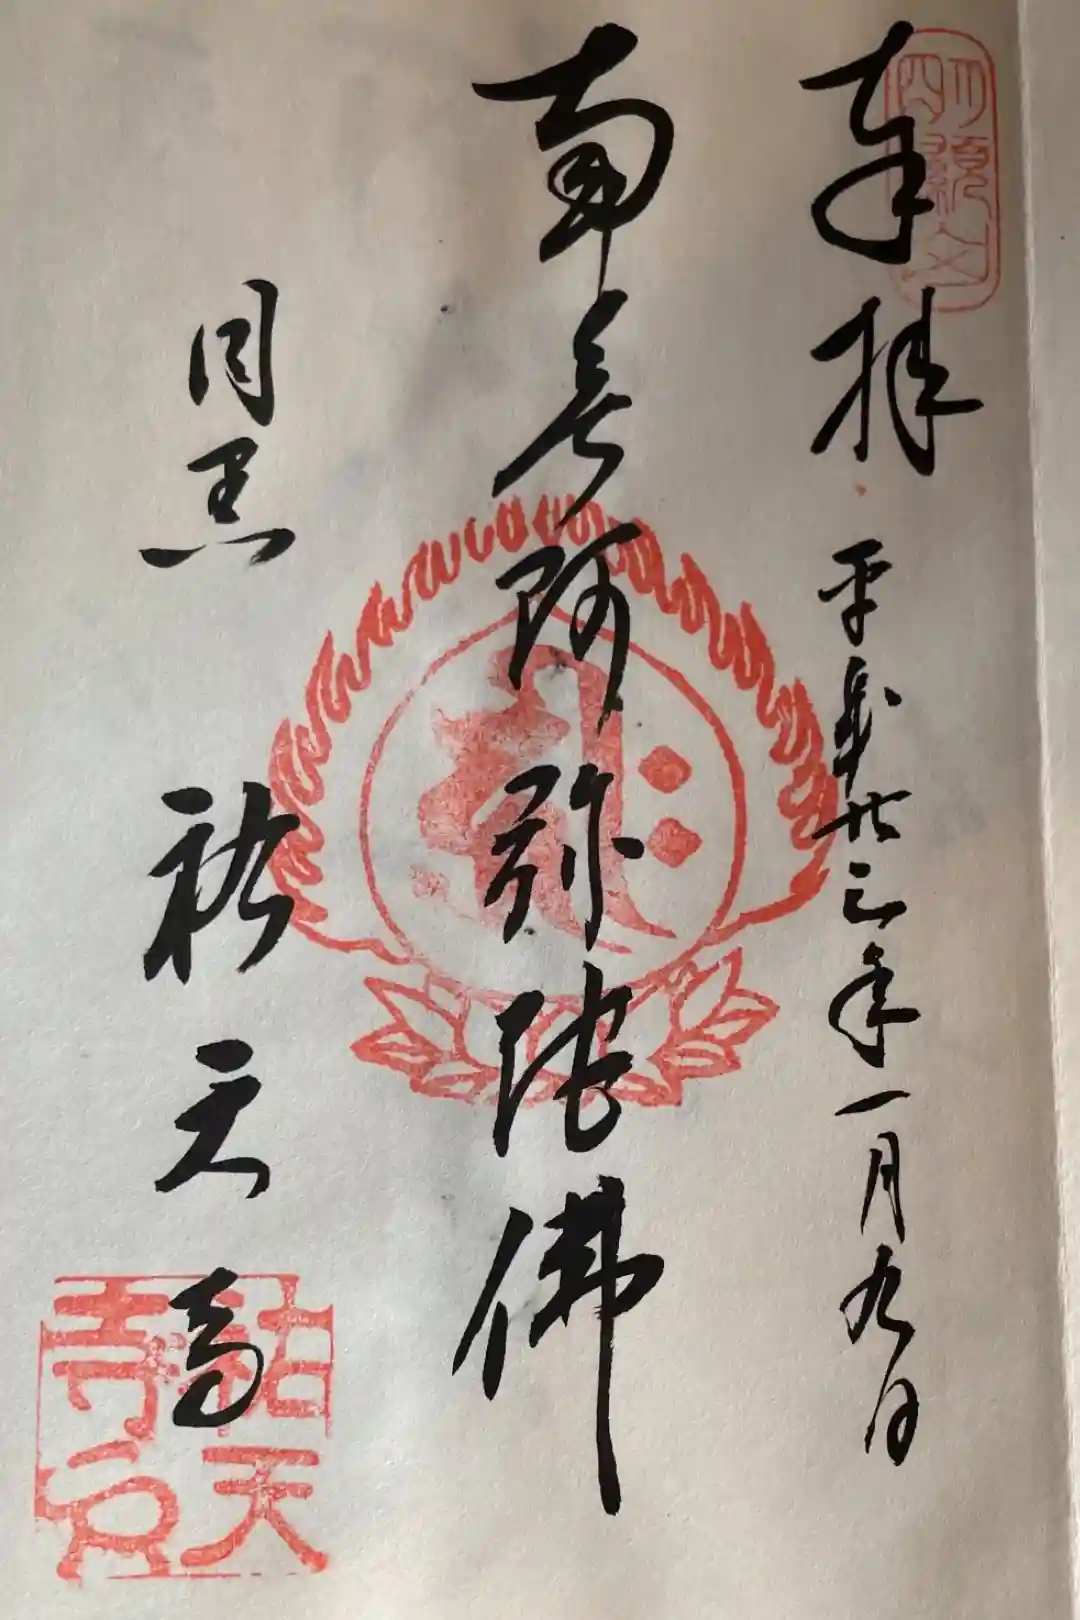 明顯山
奉拝 平成廿三年一月九日
南無阿弥陀佛
目黒 祐天寺
祐天寺印